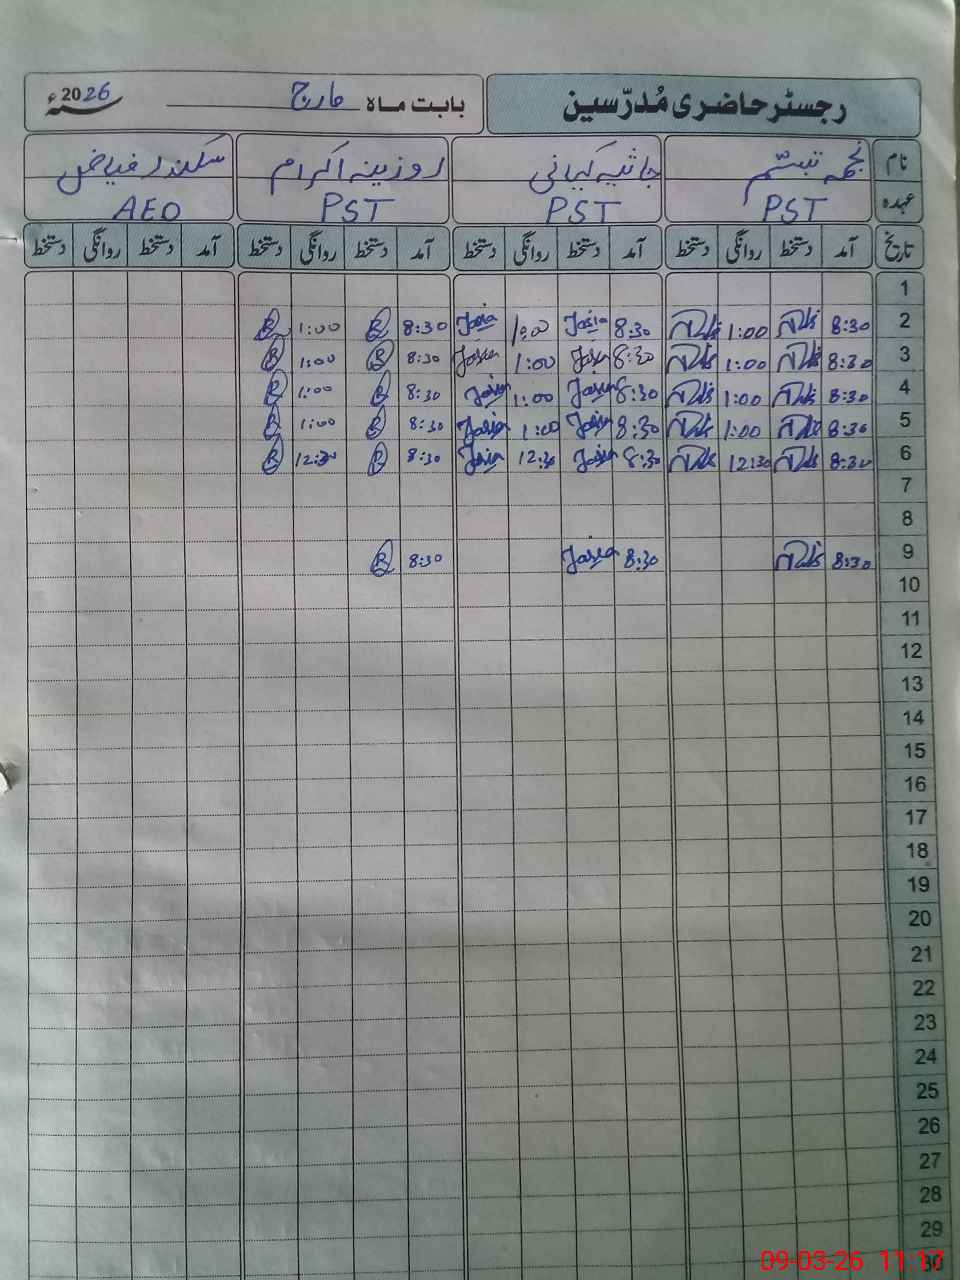 رجسٹر حاضری مُدرّسین
بابت ماہ مارچ سنہء 2026
نام نجمہ تبسّم جاثیہ کیانی روزینہ اکرام سکندر فیاض
عہدہ PST PST PST AEO
تاریخ آمد دستخط روانگی دستخط آمد دستخط روانگی دستخط آمد دستخط روانگی دستخط آمد دستخط روانگی دستخط
1
2 8:30 1:00 8:30 Jasia 1:00 Jasia 8:30 R 1:00 R
3 8:30 1:00 8:30 Jasia 1:00 Jasia 8:30 R 1:00 R
4 8:30 1:00 8:30 Jasia 1:00 Jasia 8:30 R 1:00 R
5 8:30 1:00 8:30 Jasia 1:00 Jasia 8:30 R 1:00 R
6 8:30 12:30 8:30 Jasia 12:30 Jasia 8:30 R 12:30 R
7
8
9 8:30 8:30 Jasia 8:30 R
10
11
12
13
14
15
16
17
18
19
20
21
22
23
24
25
26
27
28
29
30
09-03-26 11:17